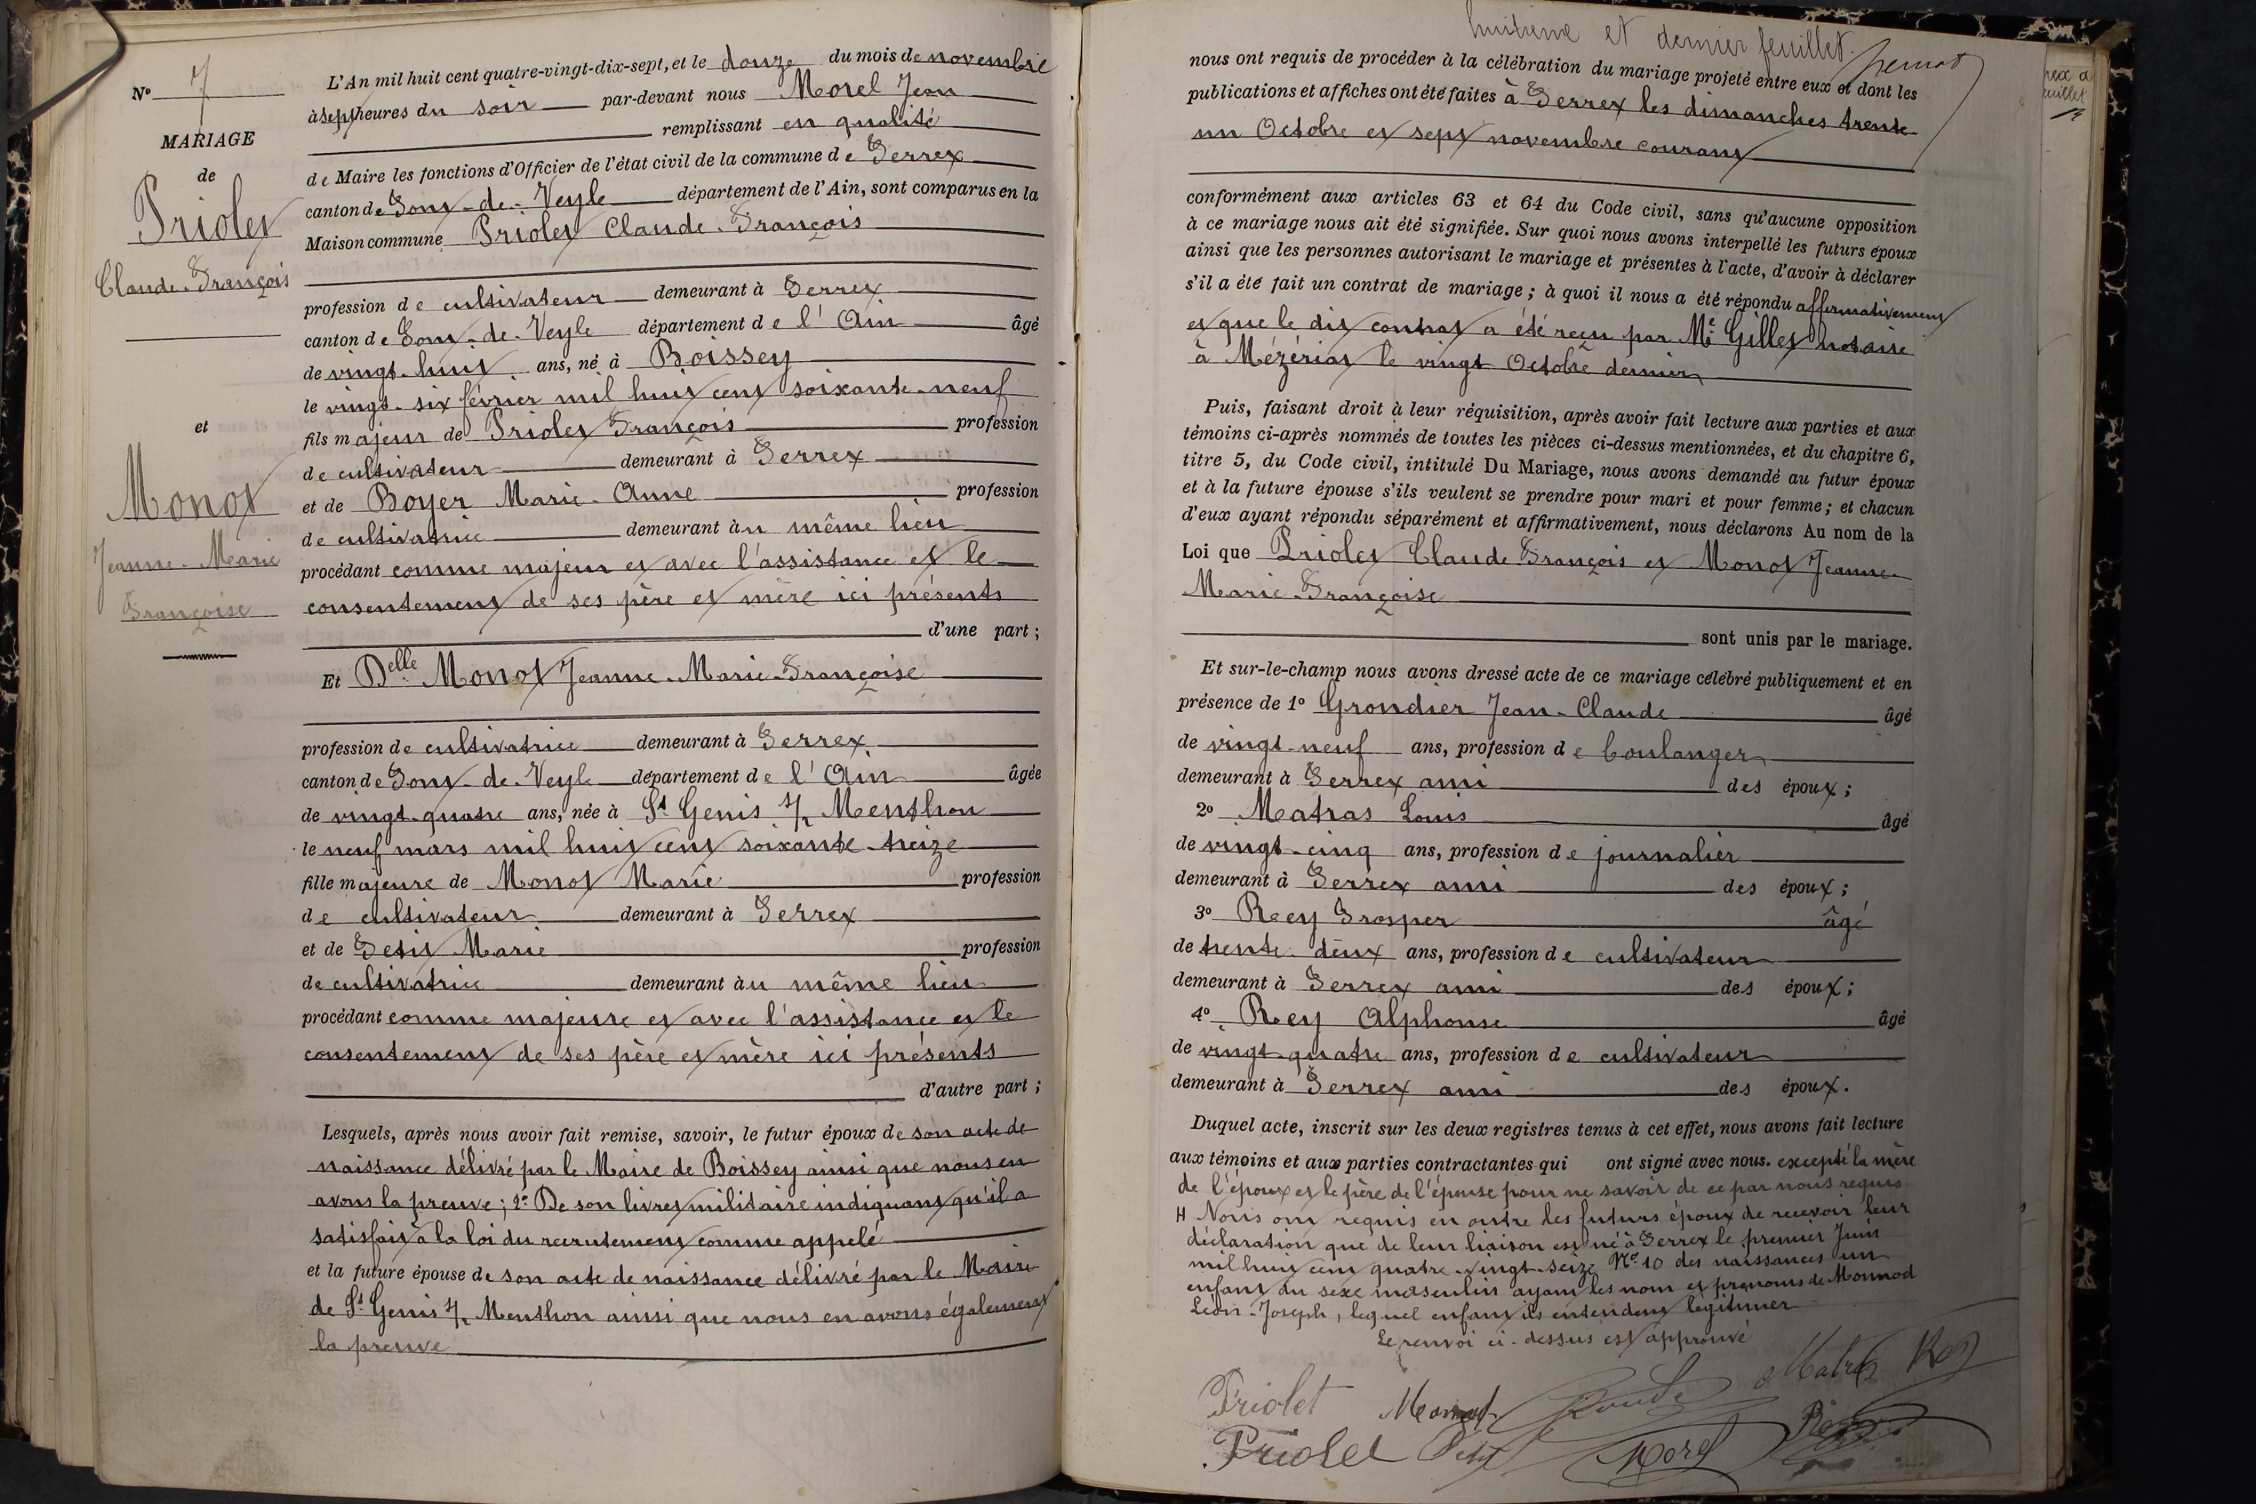 N° 7
MARIAGE
de
Priolet
Claude-François
et
Monot
Jeanne-Marie
Françoise
L'An mil huit cent quatre-vingt-dix-sept, et le douze du mois de novembre
à sept heures du soir par-devant nous Morel Jean
remplissant en qualité
de Maire les fonctions d'Officier de l'état civil de la commune de Perrex
canton de Pont-de-Veyle département de l'Ain, sont comparus en la
Maison commune Priolet Claude-François
profession de cultivateur demeurant à Perrex
canton de Pont-de-Veyle département de l'Ain âgé
de vingt-huit ans, né à Boissey
le vingt-six février mil huit cent soixante-neuf
fils majeur de Priolet François profession
de cultivateur demeurant à Perrex
et de Boyer Marie-Anne profession
de cultivatrice demeurant au même lieu
procédant comme majeur et avec l'assistance et le
consentement de ses père et mère ici présents
d'une part ;
Et Delle Monot Jeanne-Marie-Françoise
profession de cultivatrice demeurant à Perrex
canton de Pont-de-Veyle département de l'Ain âgée
de vingt-quatre ans, née à St Genis s/ Menthon
le neuf mars mil huit cent soixante-treize
fille majeure de Monot Marie profession
de cultivateur demeurant à Perrex
et de Petit Marie profession
de cultivatrice demeurant au même lieu
procédant comme majeure et avec l'assistance et le
consentement de ses père et mère ici présents
d'autre part ;
Lesquels, après nous avoir fait remise, savoir, le futur époux de son acte de
naissance délivré par le Maire de Boissey ainsi que nous en
avons la preuve ; 2° De son livret militaire indiquant qu'il a
satisfait à la loi du recrutement comme appelé
et la future épouse de son acte de naissance délivré par le Maire
de St Genis s/ Menthon ainsi que nous en avons également
la preuve
huitième et dernier feuillet.
nous ont requis de procéder à la célébration du mariage projeté entre eux et dont les
publications et affiches ont été faites à Perrex les dimanches trente
un Octobre et sept novembre courant
conformément aux articles 63 et 64 du Code civil, sans qu'aucune opposition
à ce mariage nous ait été signifiée. Sur quoi nous avons interpellé les futurs époux
ainsi que les personnes autorisant le mariage et présentes à l'acte, d'avoir à déclarer
s'il a été fait un contrat de mariage ; à quoi il nous a été répondu affirmativement
et que le dit contrat a été reçu par Me Gillet notaire
à Mézériat le vingt Octobre dernier
Puis, faisant droit à leur réquisition, après avoir fait lecture aux parties et aux
témoins ci-après nommés de toutes les pièces ci-dessus mentionnées, et du chapitre 6,
titre 5, du Code civil, intitulé Du Mariage, nous avons demandé au futur époux
et à la future épouse s'ils veulent se prendre pour mari et pour femme ; et chacun
d'eux ayant répondu séparément et affirmativement, nous déclarons Au nom de la
Loi que Priolet Claude François et Monot Jeanne-
Marie-Françoise
sont unis par le mariage.
Et sur-le-champ nous avons dressé acte de ce mariage célébré publiquement et en
présence de 1° Grondier Jean-Claude âgé
de vingt-neuf ans, profession de boulanger
demeurant à Perrex ami des époux ;
2° Matras Louis âgé
de vingt-cinq ans, profession de journalier
demeurant à Perrex ami des époux ;
3° Rey Prosper âgé
de trente-deux ans, profession de cultivateur
demeurant à Perrex ami des époux ;
4° Rey Alphonse âgé
de vingt-quatre ans, profession de cultivateur
demeurant à Perrex ami des époux.
Duquel acte, inscrit sur les deux registres tenus à cet effet, nous avons fait lecture
aux témoins et aux parties contractantes qui ont signé avec nous. excepté la mère
de l'époux et le père de l'épouse pour ne savoir de ce par nous requis
H Nous ont requis en outre les futurs époux de recevoir leur
déclaration que de leur liaison est né à Perrex le premier Juin
mil huit cent quatre-vingt-seize No 10 des naissances un
enfant du sexe masculin ayant les nom et prénoms de Monnod
Léon-Joseph, lequel enfant ils entendent légitimer
Le renvoi ci-dessus est approuvé
Priolet Monot Matras Rey
Priolet Petit Morel Rey